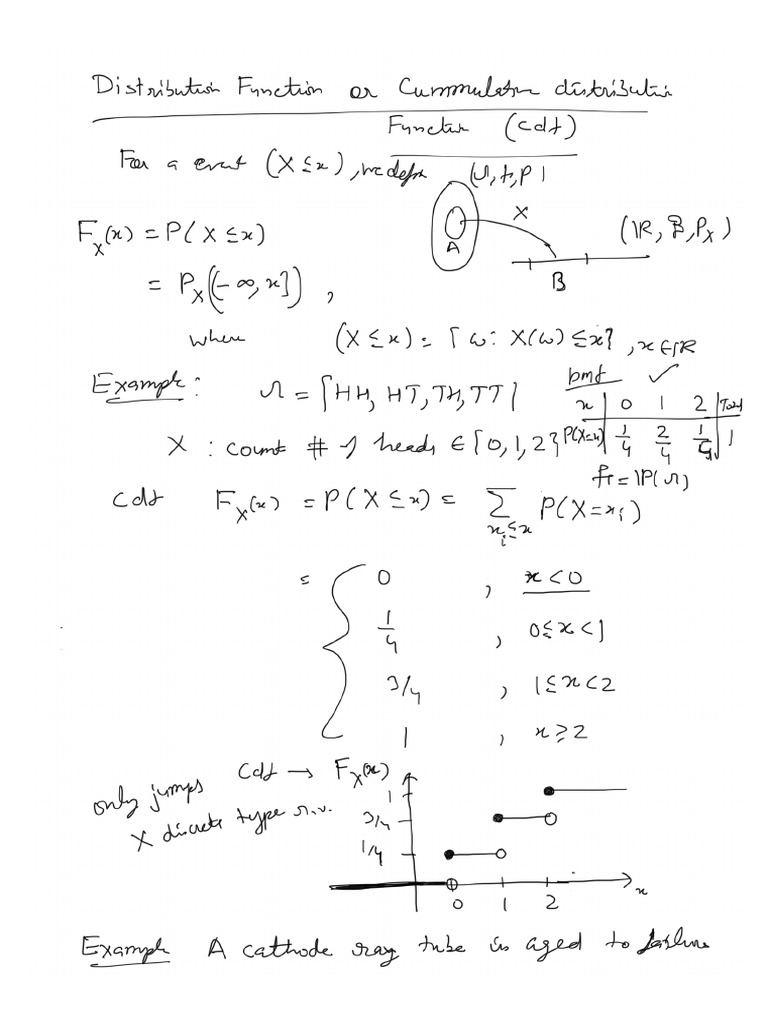 Distribution Function or Cummulative distribution
Function (cdf)
For a event (X ≤ x), we define (Ω, A, P)
F_X(x) = P(X ≤ x)
X
A
(IR, B, P_X)
B
= P_X((-∞, x]) ,
where (X ≤ x) = {ω: X(ω) ≤ x}, x ∈ IR
Example: Ω = {HH, HT, TH, TT}
pmf ✓
x | 0 1 2 | Total
P(X=x) | 1/4 2/4 1/4 | 1
X : count # of heads ∈ {0, 1, 2}
= P(Ω)
cdf F_X(x) = P(X ≤ x) = Σ_{x_i ≤ x} P(X = x_i)
= { 0 , x < 0
1/4 , 0 ≤ x < 1
3/4 , 1 ≤ x < 2
1 , x ≥ 2
only jumps
X discrete type r.v.
cdf → F_X(x)
1
3/4
1/4
0 1 2 x
Example A cathode ray tube is aged to failure